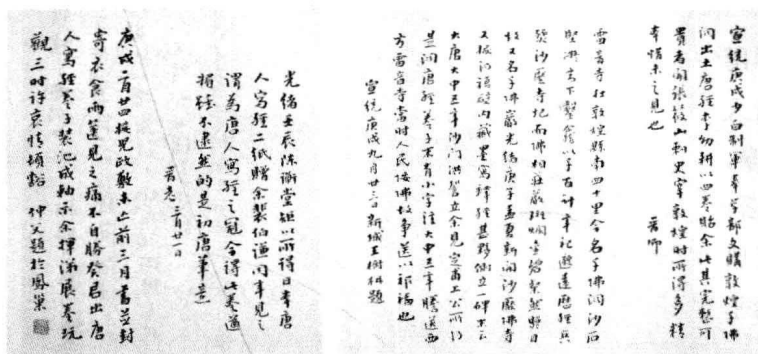 宣統庚戌方伯制軍奉學部文購敦煌千佛
洞出土唐經李幼耕以四卷貽余此其完整可
貴者聞張筱山刺史宰敦煌時所得多精
惜未之見也 晉卿
雷音寺在敦煌縣南四十里今名千佛洞沙石
堅凝高下鑿龕以千百計年祀邈遠歷經兵
燹沙壓寺圮而佛相莊嚴斑斕金碧粲然醒目
故又名千佛巖光緒庚子孟夏新開沙壓佛寺
又掖洞複壁內藏墨寫釋經甚夥側立一碑末云
大唐大中五年沙門洪䛒立余見定甫上公所
是洞唐經卷子末有小字注大中三年騰送西
方雷音寺當時人民佞佛故事送以祈福也
宣統庚戌九月廿三日新城王樹枏題
光緒壬辰陳衡堂以所得日本唐
人寫經二紙贈余裴伯謙同年見之
謂為唐人寫經之冠今得此卷
不逮然的是初唐筆意
晉老 三月廿一日
庚戌二月廿四挨兒政敷未亡前三月書並封
寄衣食兩篋見之痛不自勝癸君出唐
人寫經卷子裝池成軸示余揮涕展卷玩
觀三時許哀情頓豁 仲父題於鳳巢